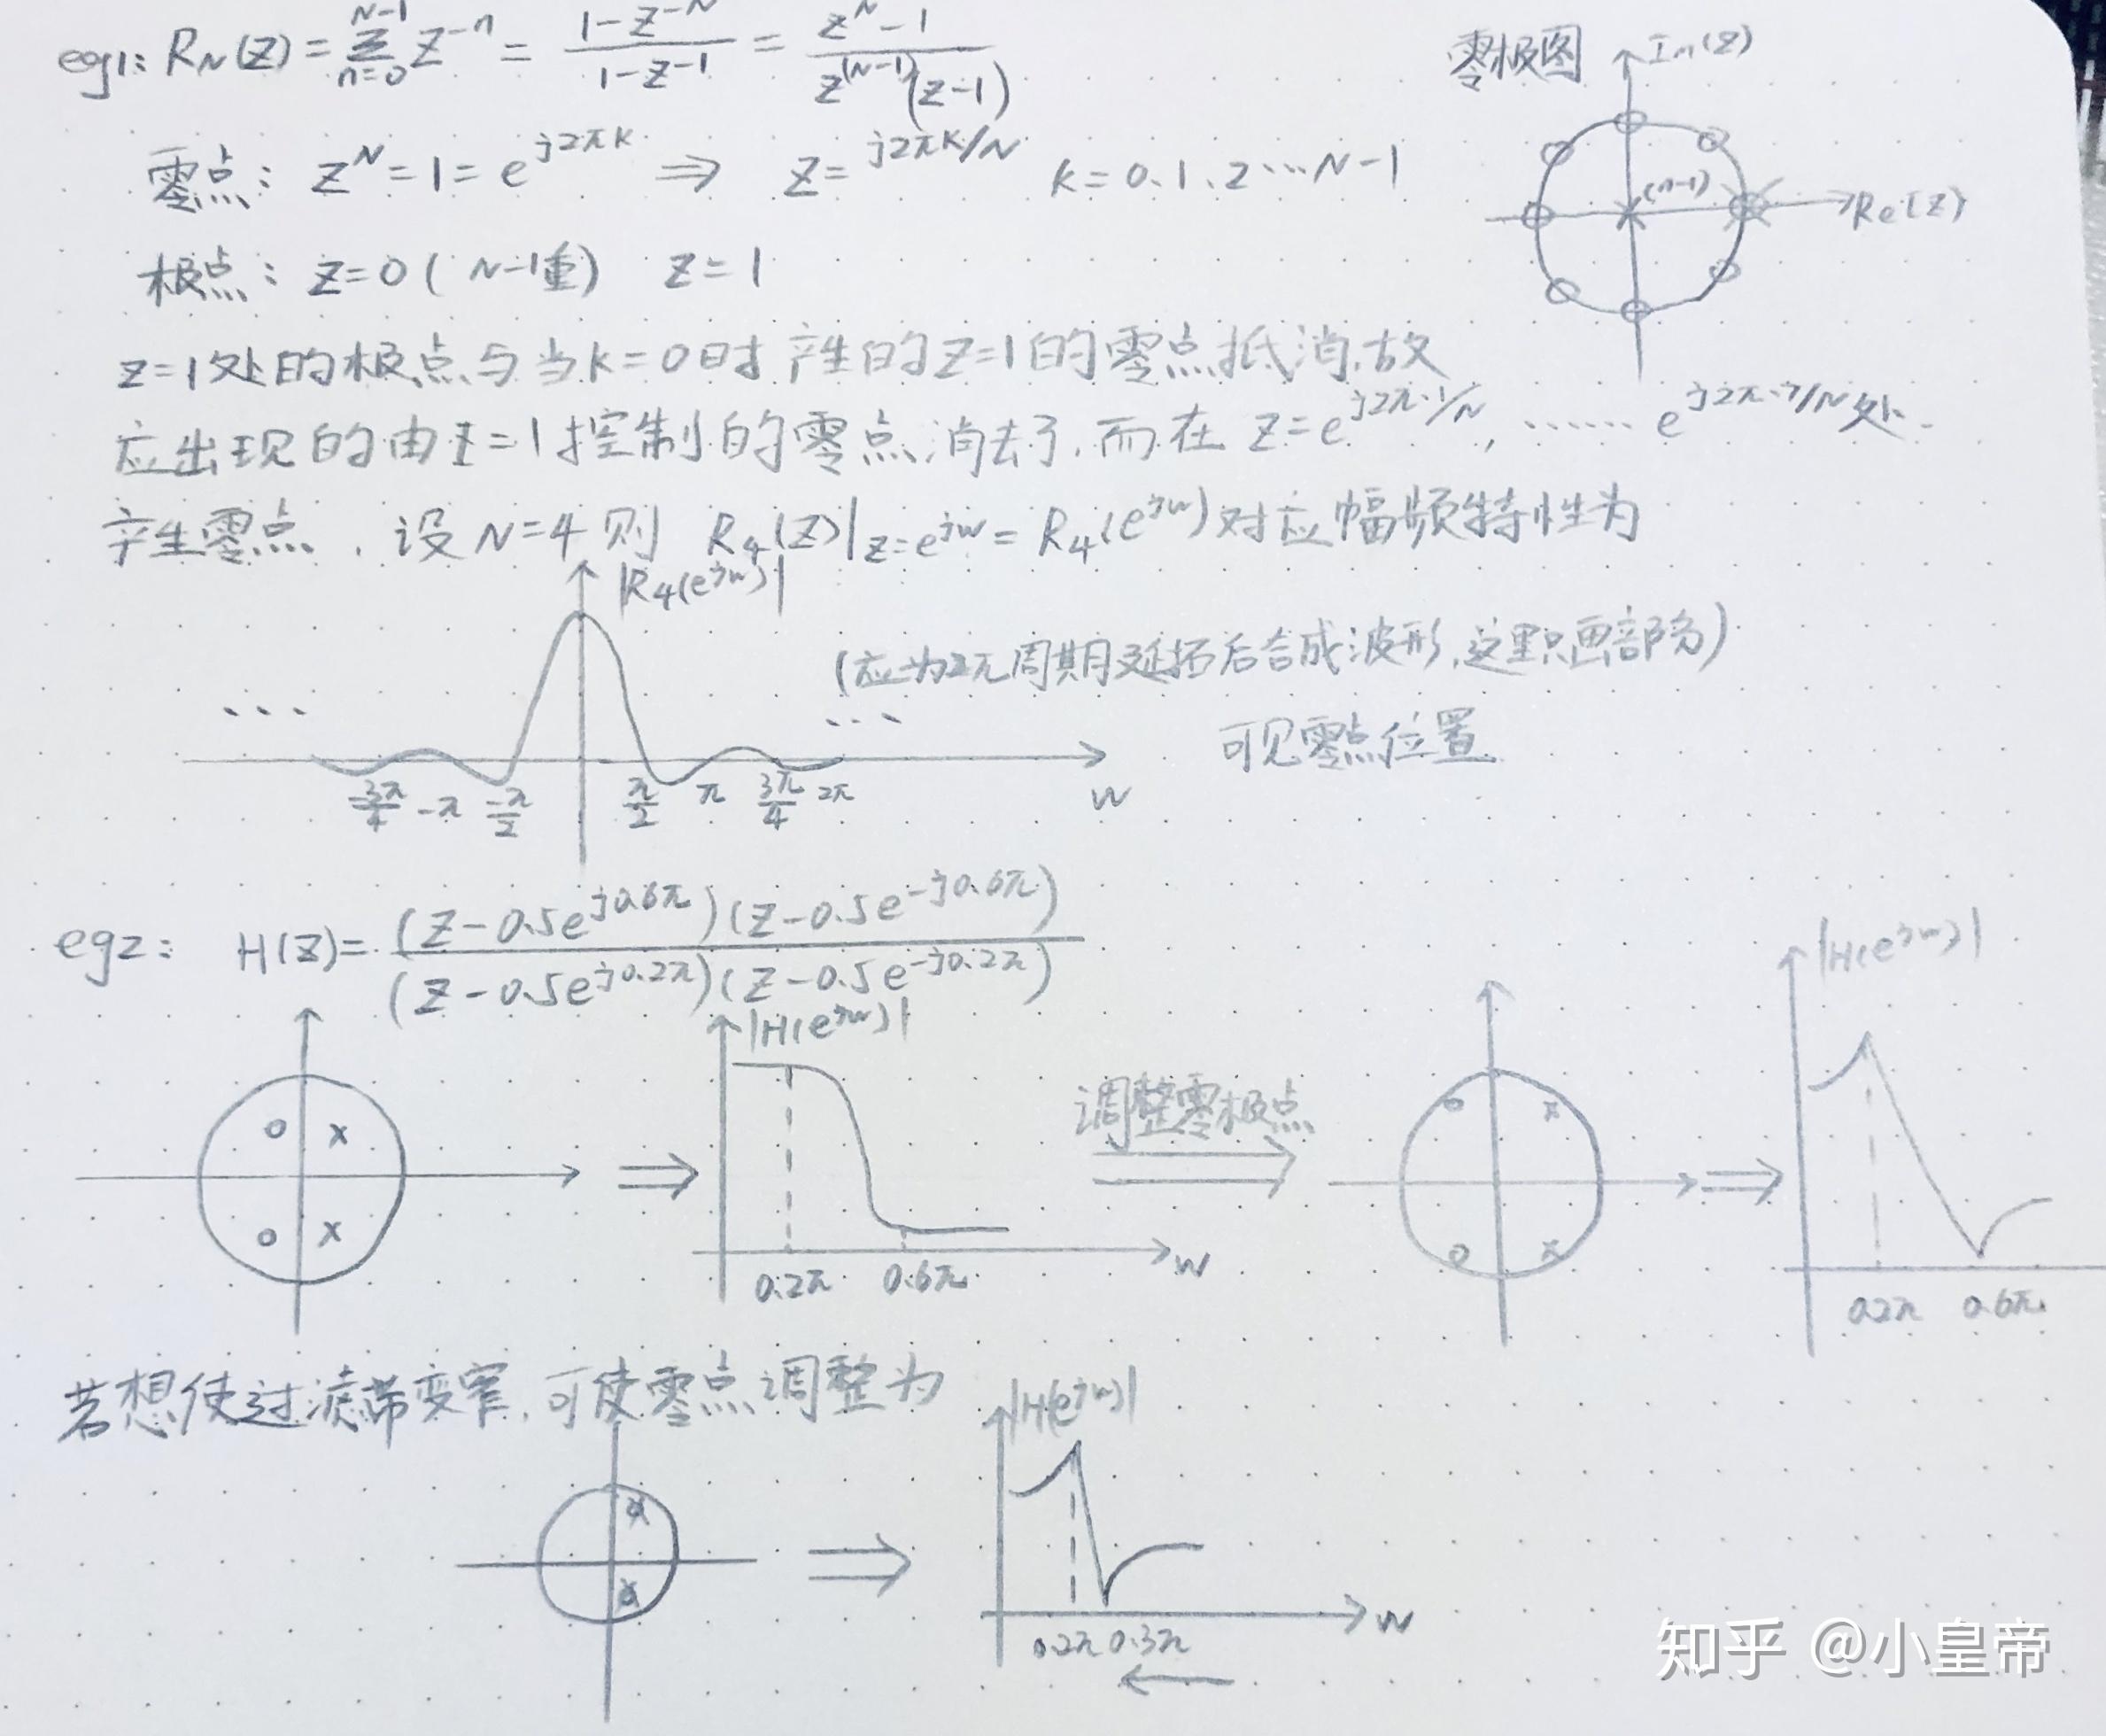 eg1: R_N(Z) = \sum_{n=0}^{N-1} Z^{-n} = \frac{1-Z^{-N}}{1-Z^{-1}} = \frac{Z^N-1}{Z^{(N-1)}(Z-1)}
零极图 Im(Z)
零点: Z^N = 1 = e^{j2πk} ⇒ Z = ^{j2πk/N} k=0.1.2…N-1
(n-1) Re(Z)
极点: Z=0 (N-1重) Z=1
Z=1处的极点与当k=0时产生的Z=1的零点抵消,故
应出现的由Z=1控制的零点消去了,而在 Z=e^{j2π·1/N}, …… e^{j2π·7/N}处
产生零点. 设N=4则 R_4(Z)|_{Z=e^{jw}} = R_4(e^{jw})对应幅频特性为
|R_4(e^{jw})|
(应为2π周期延拓后合成波形,这里只画部分)
... ...
可见零点位置
-3π/4 -π -π/2 π/2 π 3π/4 2π w
eg2: H(Z) = \frac{(Z-0.5e^{j0.6π})(Z-0.5e^{-j0.6π})}{(Z-0.5e^{j0.2π})(Z-0.5e^{-j0.2π})}
|H(e^{jw})|
|H(e^{jw})|
调整零极点
0.2π 0.6π w
0.2π 0.6π
若想使过滤带变窄,可使零点调整为
|H(e^{jw})|
0.2π 0.3π w
知乎 @小皇帝